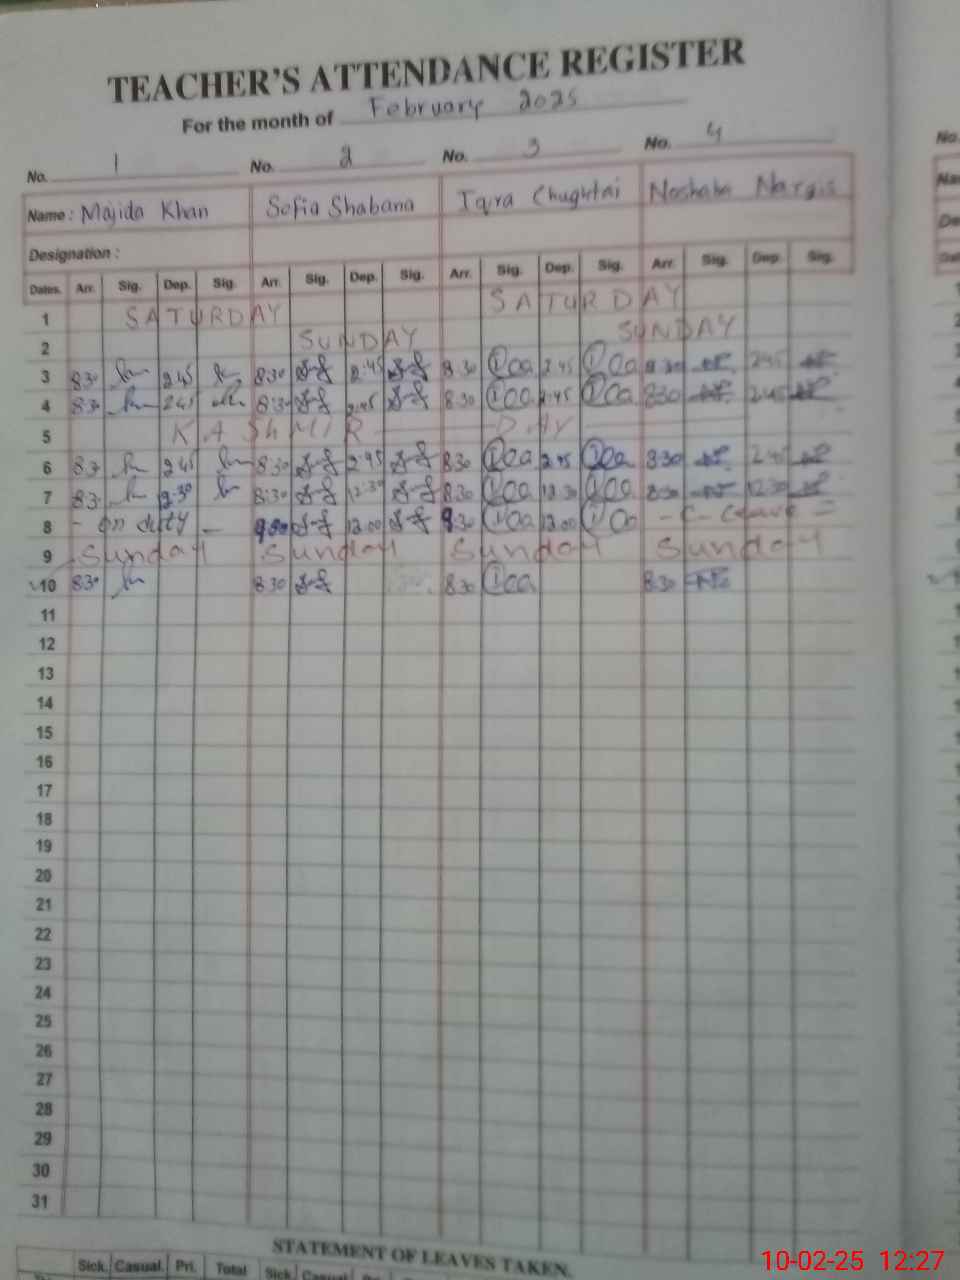 TEACHER'S ATTENDANCE REGISTER
For the month of February 2025
No. 1 No. 2 No. 3 No. 4
Name: Majida Khan Sofia Shabana Iqra Chughtai Noshaba Nargis
Designation:
Dates. Arr. Sig. Dep. Sig. Arr. Sig. Dep. Sig. Arr. Sig. Dep. Sig. Arr. Sig. Dep. Sig.
1 SATURDAY SATURDAY
2 SUNDAY SUNDAY
3 830 245 8:30 2:45 8.30 2.45 8.30 245
4 830 245 8:30 2:45 8.30 2.45 830 245
5 KASHMIR DAY
6 830 245 8:30 2:45 8.30 2.45 8.30 2.45
7 830 12:30 8:30 12:30 8.30 12.30 8.30 1230
8 - on duty - 9.30 12:00 9.30 12.00 - C-Leave =
9 Sunday Sunday Sunday Sunday
10 830 8.30 8.30 8.30
11
12
13
14
15
16
17
18
19
20
21
22
23
24
25
26
27
28
29
30
31
STATEMENT OF LEAVES TAKEN.
Sick. Casual. Pri. Total Sick. Casual
10-02-25 12:27